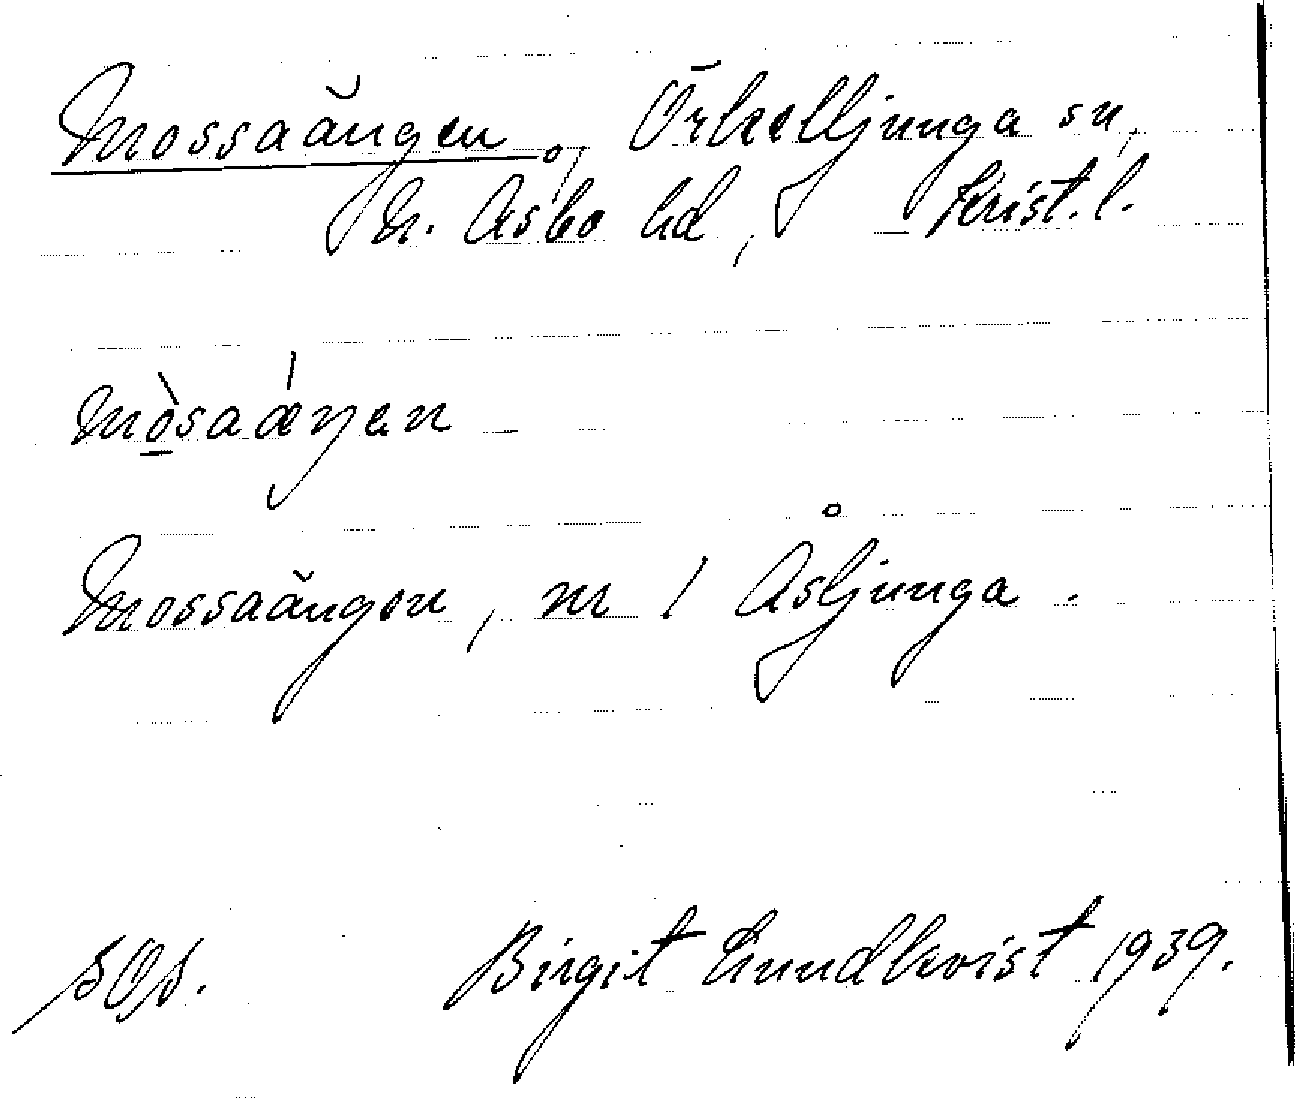 Mossaängen, Örkelljunga sn,
N. Åsbo hd, Krist. l.
mòsaǽŋen
Mossaängen, nr 1 Åsljunga.
Birgit Lundkvist 1939.